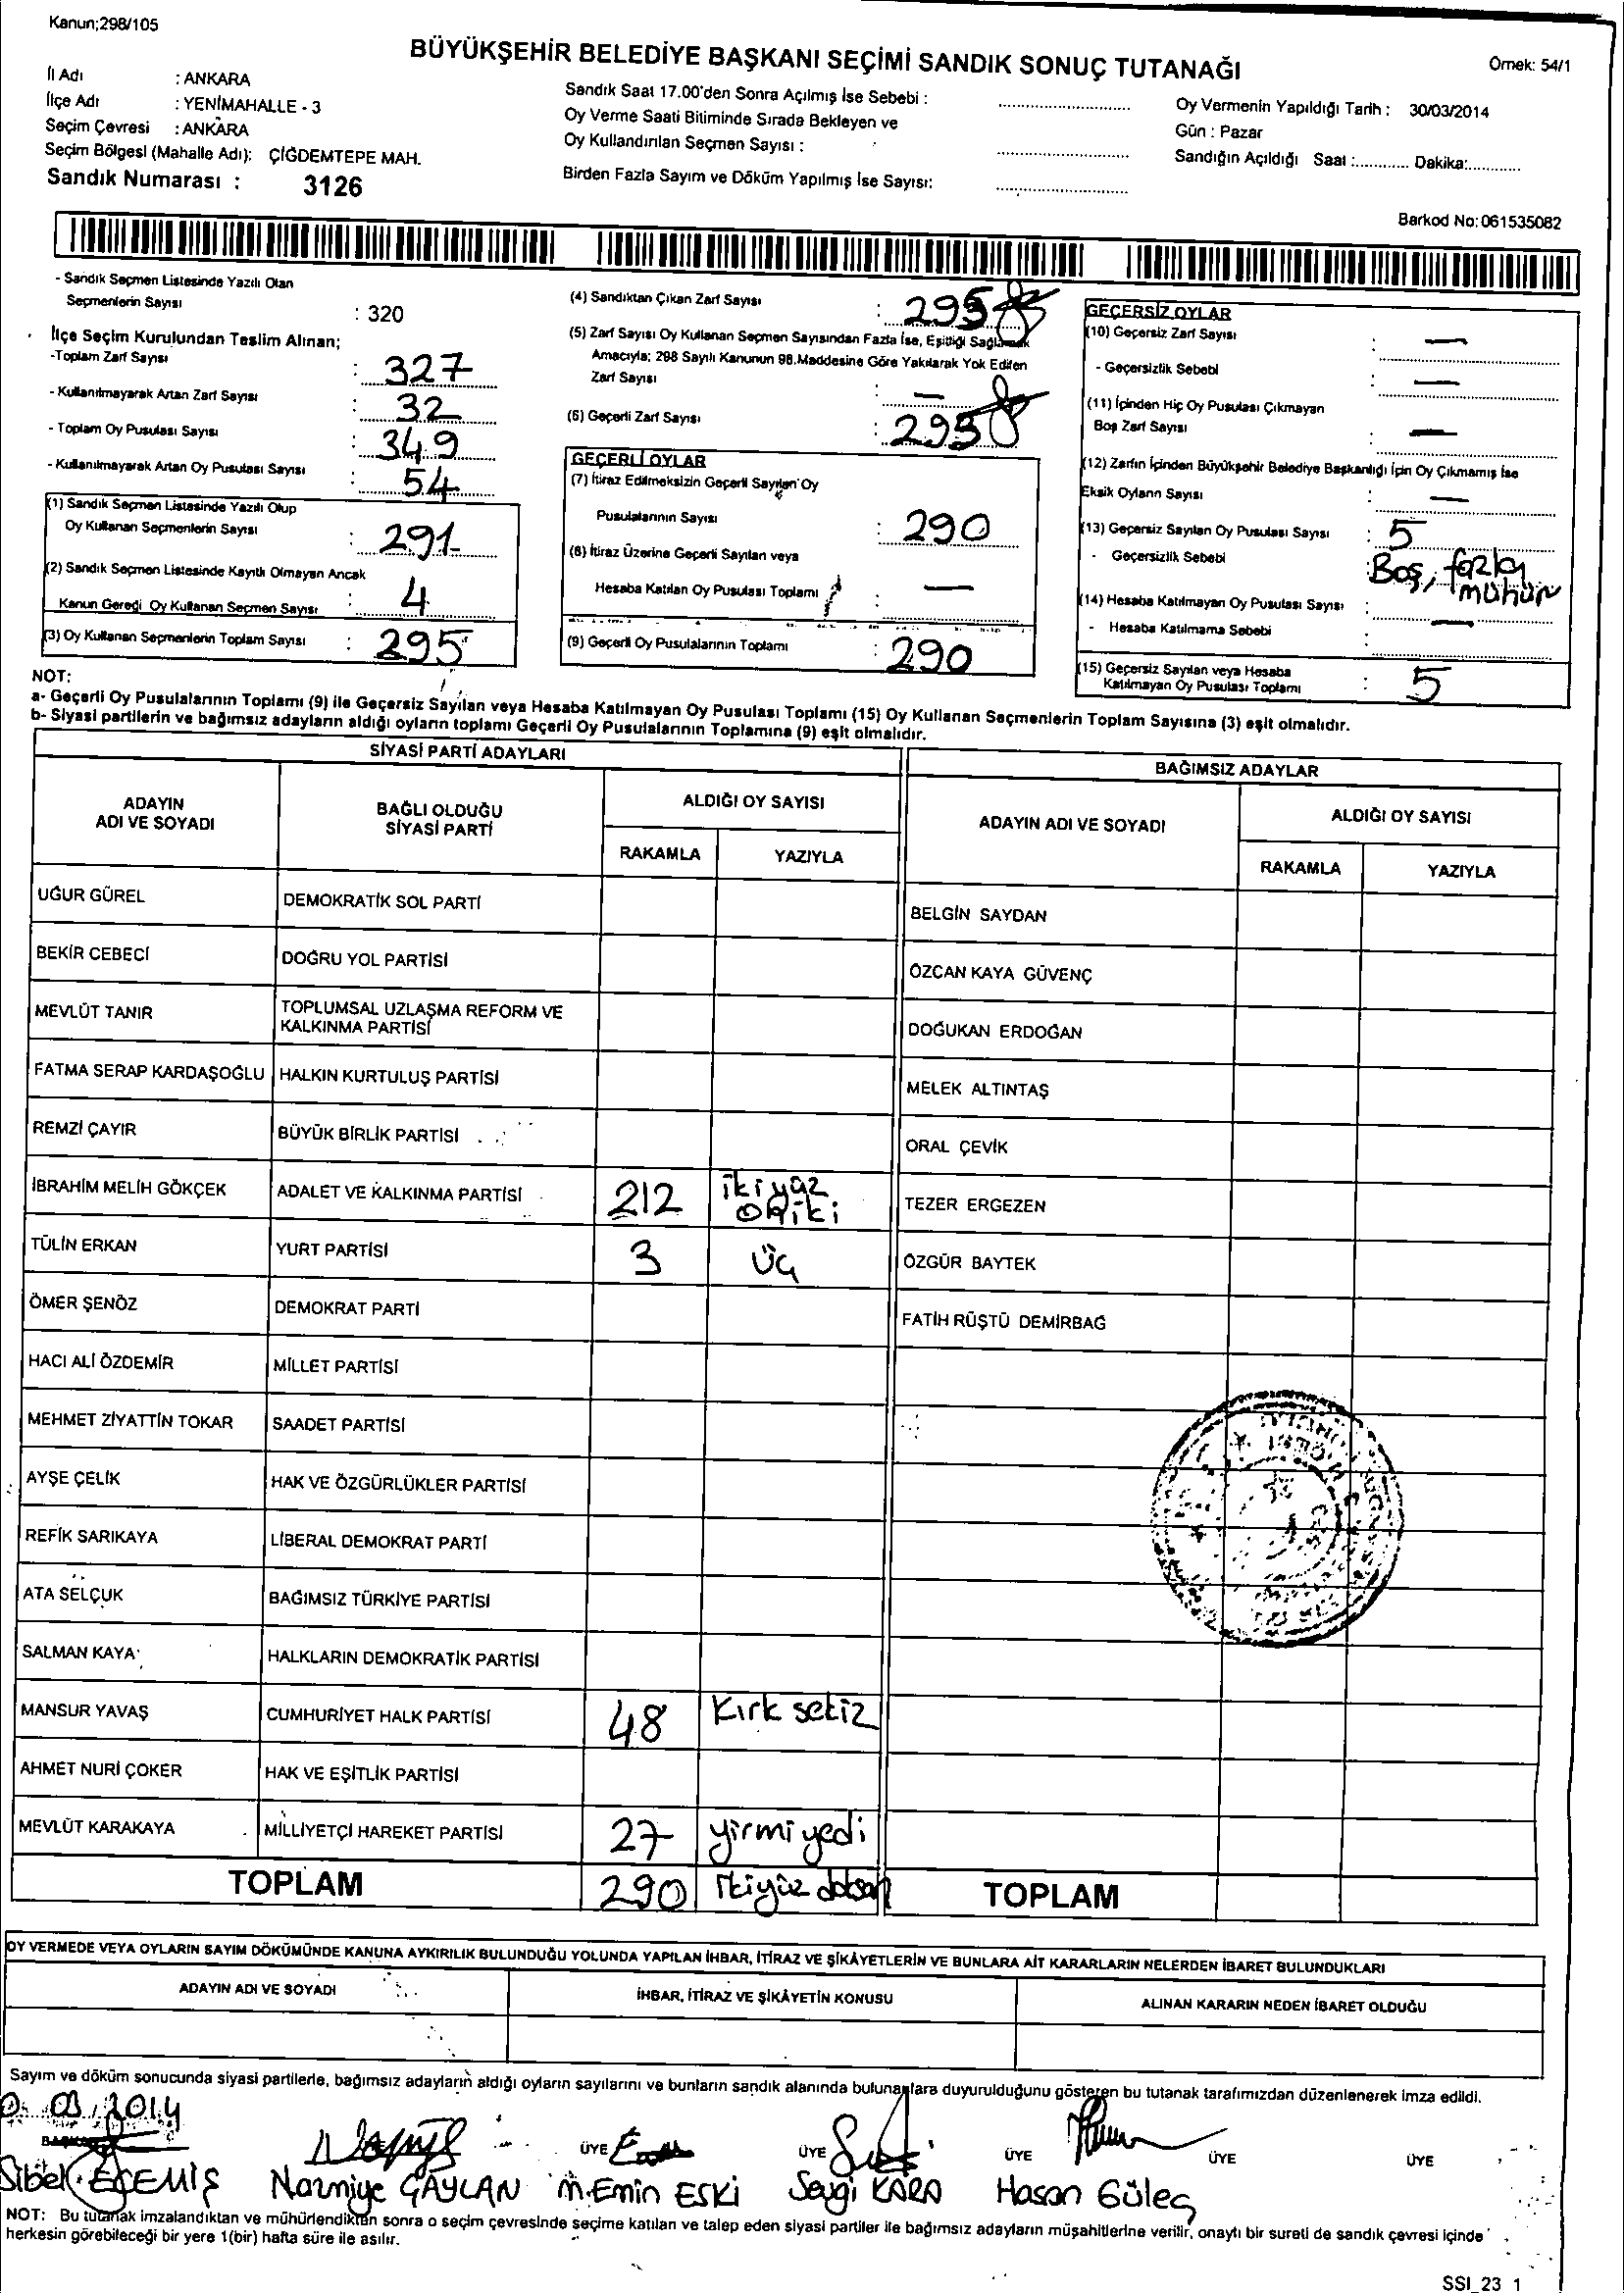 Kanun;298/105
BÜYÜKŞEHİR BELEDİYE BAŞKANI SEÇİMİ SANDIK SONUÇ TUTANAĞI
Örnek: 54/1
İl Adı : ANKARA
İlçe Adı : YENİMAHALLE - 3
Seçim Çevresi : ANKARA
Seçim Bölgesi (Mahalle Adı): ÇİĞDEMTEPE MAH.
Sandık Numarası : 3126
Sandık Saat 17.00'den Sonra Açılmış İse Sebebi :
Oy Verme Saati Bitiminde Sırada Bekleyen ve
Oy Kullandırılan Seçmen Sayısı :
Birden Fazla Sayım ve Döküm Yapılmış İse Sayısı:
Oy Vermenin Yapıldığı Tarih : 30/03/2014
Gün : Pazar
Sandığın Açıldığı Saat :............ Dakika:............
Barkod No:061535082
- Sandık Seçmen Listesinde Yazılı Olan
Seçmenlerin Sayısı : 320
İlçe Seçim Kurulundan Teslim Alınan;
-Toplam Zarf Sayısı : 327
- Kullanılmayarak Artan Zarf Sayısı : 32
- Toplam Oy Pusulası Sayısı : 349
- Kullanılmayarak Artan Oy Pusulası Sayısı : 54
(1) Sandık Seçmen Listesinde Yazılı Olup
Oy Kullanan Seçmenlerin Sayısı : 291
(2) Sandık Seçmen Listesinde Kayıtlı Olmayan Ancak
Kanun Gereği Oy Kullanan Seçmen Sayısı : 4
(3) Oy Kullanan Seçmenlerin Toplam Sayısı : 295
(4) Sandıktan Çıkan Zarf Sayısı : 295
(5) Zarf Sayısı Oy Kullanan Seçmen Sayısından Fazla İse, Eşitliği Sağlamak
Amacıyla; 298 Sayılı Kanunun 98.Maddesine Göre Yakılarak Yok Edilen
Zarf Sayısı : —
(6) Geçerli Zarf Sayısı : 295
GEÇERLİ OYLAR
(7) İtiraz Edilmeksizin Geçerli Sayılan Oy
Pusulalarının Sayısı : 290
(8) İtiraz Üzerine Geçerli Sayılan veya
Hesaba Katılan Oy Pusulası Toplamı : —
(9) Geçerli Oy Pusulalarının Toplamı : 290
GEÇERSİZ OYLAR
(10) Geçersiz Zarf Sayısı : —
- Geçersizlik Sebebi : —
(11) İçinden Hiç Oy Pusulası Çıkmayan
Boş Zarf Sayısı : —
(12) Zarfın İçinden Büyükşehir Belediye Başkanlığı İçin Oy Çıkmamış İse
Eksik Oyların Sayısı : —
(13) Geçersiz Sayılan Oy Pusulası Sayısı : 5
- Geçersizlik Sebebi : Boş, fazla
mühür
(14) Hesaba Katılmayan Oy Pusulası Sayısı : —
- Hesaba Katılmama Sebebi :
(15) Geçersiz Sayılan veya Hesaba
Katılmayan Oy Pusulası Toplamı : 5
NOT:
a- Geçerli Oy Pusulalarının Toplamı (9) ile Geçersiz Sayılan veya Hesaba Katılmayan Oy Pusulası Toplamı (15) Oy Kullanan Seçmenlerin Toplam Sayısına (3) eşit olmalıdır.
b- Siyasi partilerin ve bağımsız adayların aldığı oyların toplamı Geçerli Oy Pusulalarının Toplamına (9) eşit olmalıdır.
SİYASİ PARTİ ADAYLARI
ADAYIN
ADI VE SOYADI
BAĞLI OLDUĞU
SİYASİ PARTİ
ALDIĞI OY SAYISI
RAKAMLA YAZIYLA
UĞUR GÜREL DEMOKRATİK SOL PARTİ
BEKİR CEBECİ DOĞRU YOL PARTİSİ
MEVLÜT TANIR TOPLUMSAL UZLAŞMA REFORM VE
KALKINMA PARTİSİ
FATMA SERAP KARDAŞOĞLU HALKIN KURTULUŞ PARTİSİ
REMZİ ÇAYIR BÜYÜK BİRLİK PARTİSİ
İBRAHİM MELİH GÖKÇEK ADALET VE KALKINMA PARTİSİ 212 ikiyüz
oniki
TÜLİN ERKAN YURT PARTİSİ 3 üç
ÖMER ŞENÖZ DEMOKRAT PARTİ
HACI ALİ ÖZDEMİR MİLLET PARTİSİ
MEHMET ZİYATTİN TOKAR SAADET PARTİSİ
AYŞE ÇELİK HAK VE ÖZGÜRLÜKLER PARTİSİ
REFİK SARIKAYA LİBERAL DEMOKRAT PARTİ
ATA SELÇUK BAĞIMSIZ TÜRKİYE PARTİSİ
SALMAN KAYA HALKLARIN DEMOKRATİK PARTİSİ
MANSUR YAVAŞ CUMHURİYET HALK PARTİSİ 48 Kırk sekiz
AHMET NURİ ÇOKER HAK VE EŞİTLİK PARTİSİ
MEVLÜT KARAKAYA MİLLİYETÇİ HAREKET PARTİSİ 27 yirmi yedi
TOPLAM 290 ikiyüz doksan
BAĞIMSIZ ADAYLAR
ADAYIN ADI VE SOYADI
ALDIĞI OY SAYISI
RAKAMLA YAZIYLA
BELGİN SAYDAN
ÖZCAN KAYA GÜVENÇ
DOĞUKAN ERDOĞAN
MELEK ALTINTAŞ
ORAL ÇEVİK
TEZER ERGEZEN
ÖZGÜR BAYTEK
FATİH RÜŞTÜ DEMİRBAĞ
TOPLAM
OY VERMEDE VEYA OYLARIN SAYIM DÖKÜMÜNDE KANUNA AYKIRILIK BULUNDUĞU YOLUNDA YAPILAN İHBAR, İTİRAZ VE ŞİKÂYETLERİN VE BUNLARA AİT KARARLARIN NELERDEN İBARET BULUNDUKLARI
ADAYIN ADI VE SOYADI İHBAR, İTİRAZ VE ŞİKÂYETİN KONUSU ALINAN KARARIN NEDEN İBARET OLDUĞU
Sayım ve döküm sonucunda siyasi partilerle, bağımsız adayların aldığı oyların sayılarını ve bunların sandık alanında bulunanlara duyurulduğunu gösteren bu tutanak tarafımızdan düzenlenerek imza edildi.
0. 03/2014
BAŞKAN ÜYE ÜYE ÜYE ÜYE ÜYE
Sibel EĞEMİŞ Nazmiye ÇAYLAN M.Emin ESKİ Sevgi KARA Hasan Güleç
NOT: Bu tutanak imzalandıktan ve mühürlendikten sonra o seçim çevresinde seçime katılan ve talep eden siyasi partiler ile bağımsız adayların müşahitlerine verilir, onaylı bir sureti de sandık çevresi içinde
herkesin görebileceği bir yere 1(bir) hafta süre ile asılır.
SSI_23 1